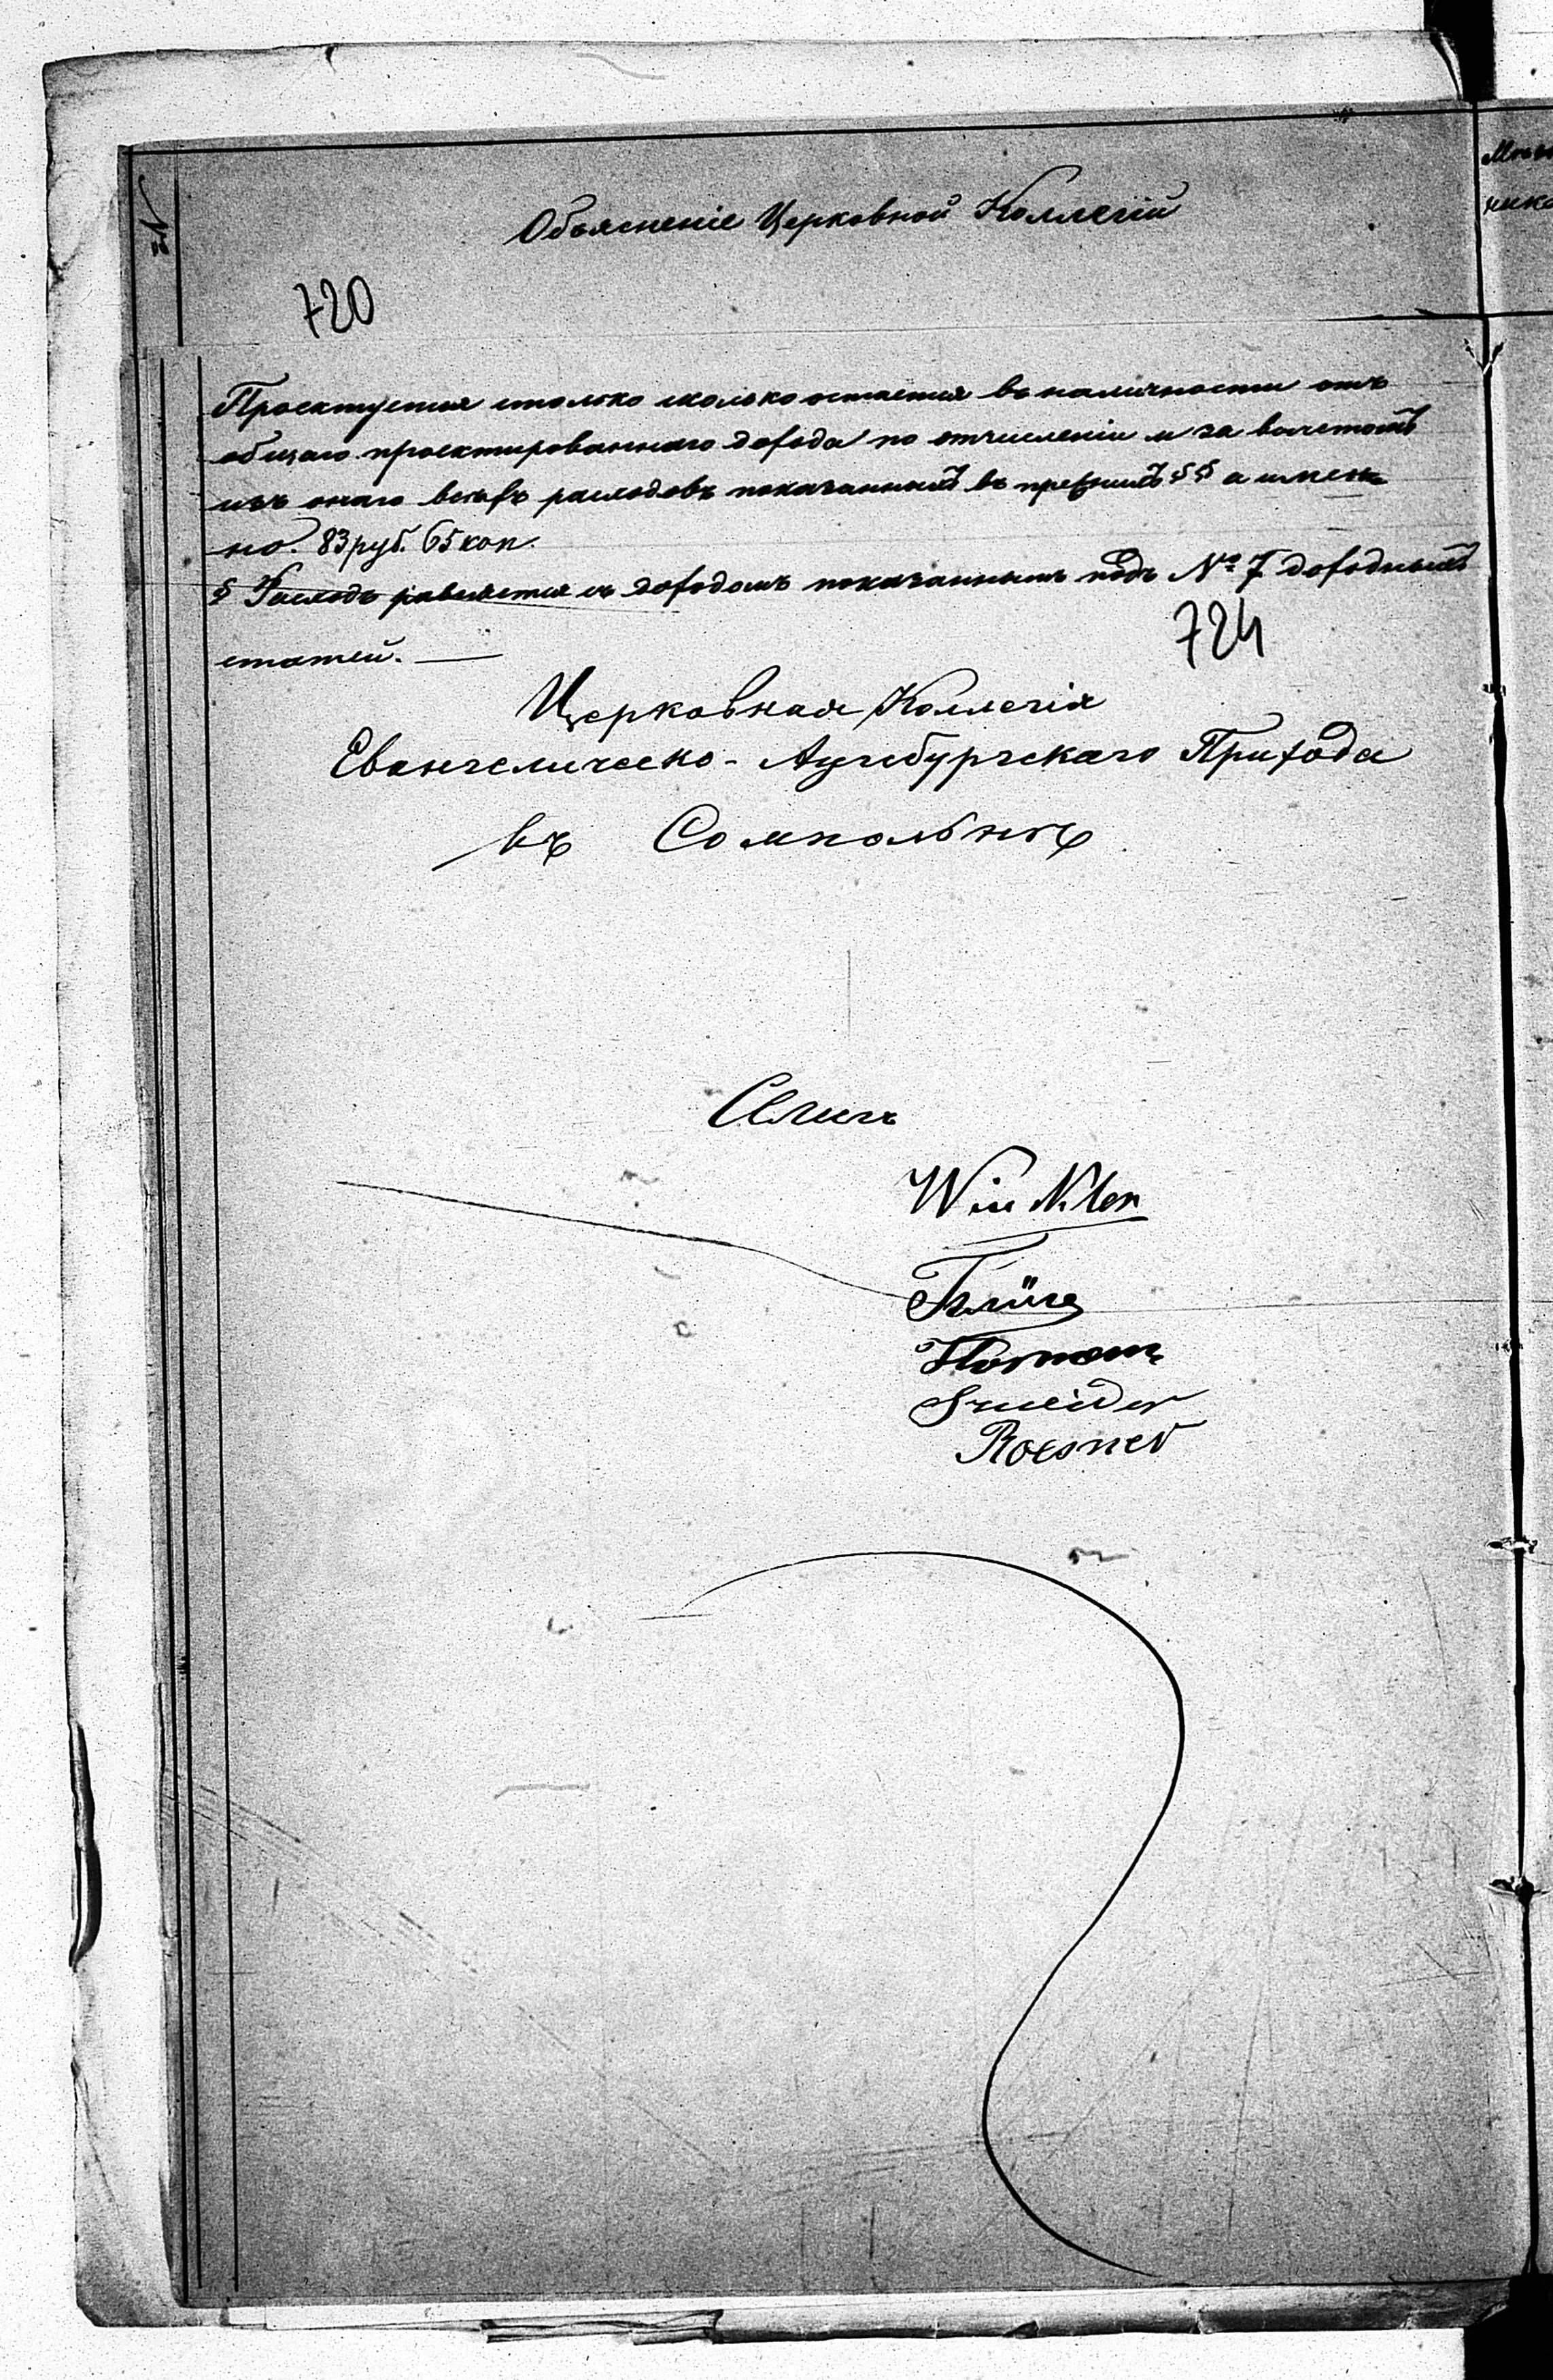 №
Объясненіе Церковной Коллегіи
720
Проектуется столько сколько остается въ наличности отъ
общаго проектированнаго дохода по отчисленіи и за вычетомъ
изъ онаго всѣхъ расходовъ показанныхъ въ прежнихъ §§ а имен
но. 83 руб. 65 коп.
§ Расходъ равняется съ доходомъ показаннымъ подъ № 7 доходныхъ
статей. —
724
Церковная Коллегія
Евангелическо-Аугсбургскаго Прихода
въ Сомпольнѣ
Winkler
Roesner